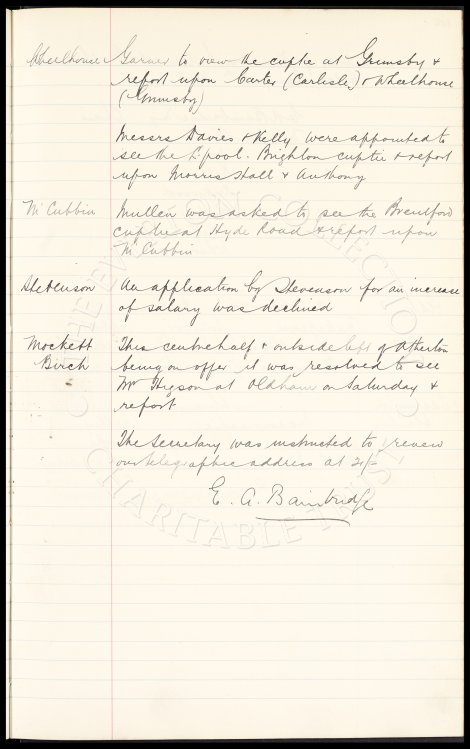 Wheelhouse Garner to view the cuptie at Grimsby &
report upon Carter (Carlisle) & Wheelhouse
(Grimsby)
Messrs Davies & Kelly were appointed to
see the L'pool. Brighton cuptie & report
upon Morris Hall & Anthony
McCubbin Mullen was asked to see the Brentford
cuptie at Hyde Road & report upon
McCubbin
Stevenson An application by Stevenson for an increase
of salary was declined
Mockett This centrehalf & outside left of Atherton
Birch being on offer it was resolved to see
Mr Higson at Oldham on Saturday &
report
The Secretary was instructed to renew
our telegraphic address at 21/-
E. A. Bainbridge
THE EVERTON COLLECTION
CHARITABLE TRUST